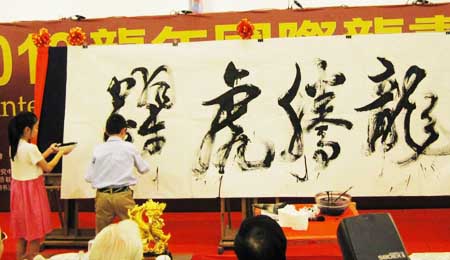 2012龍年國際龍書
Inte
龍騰虎躍